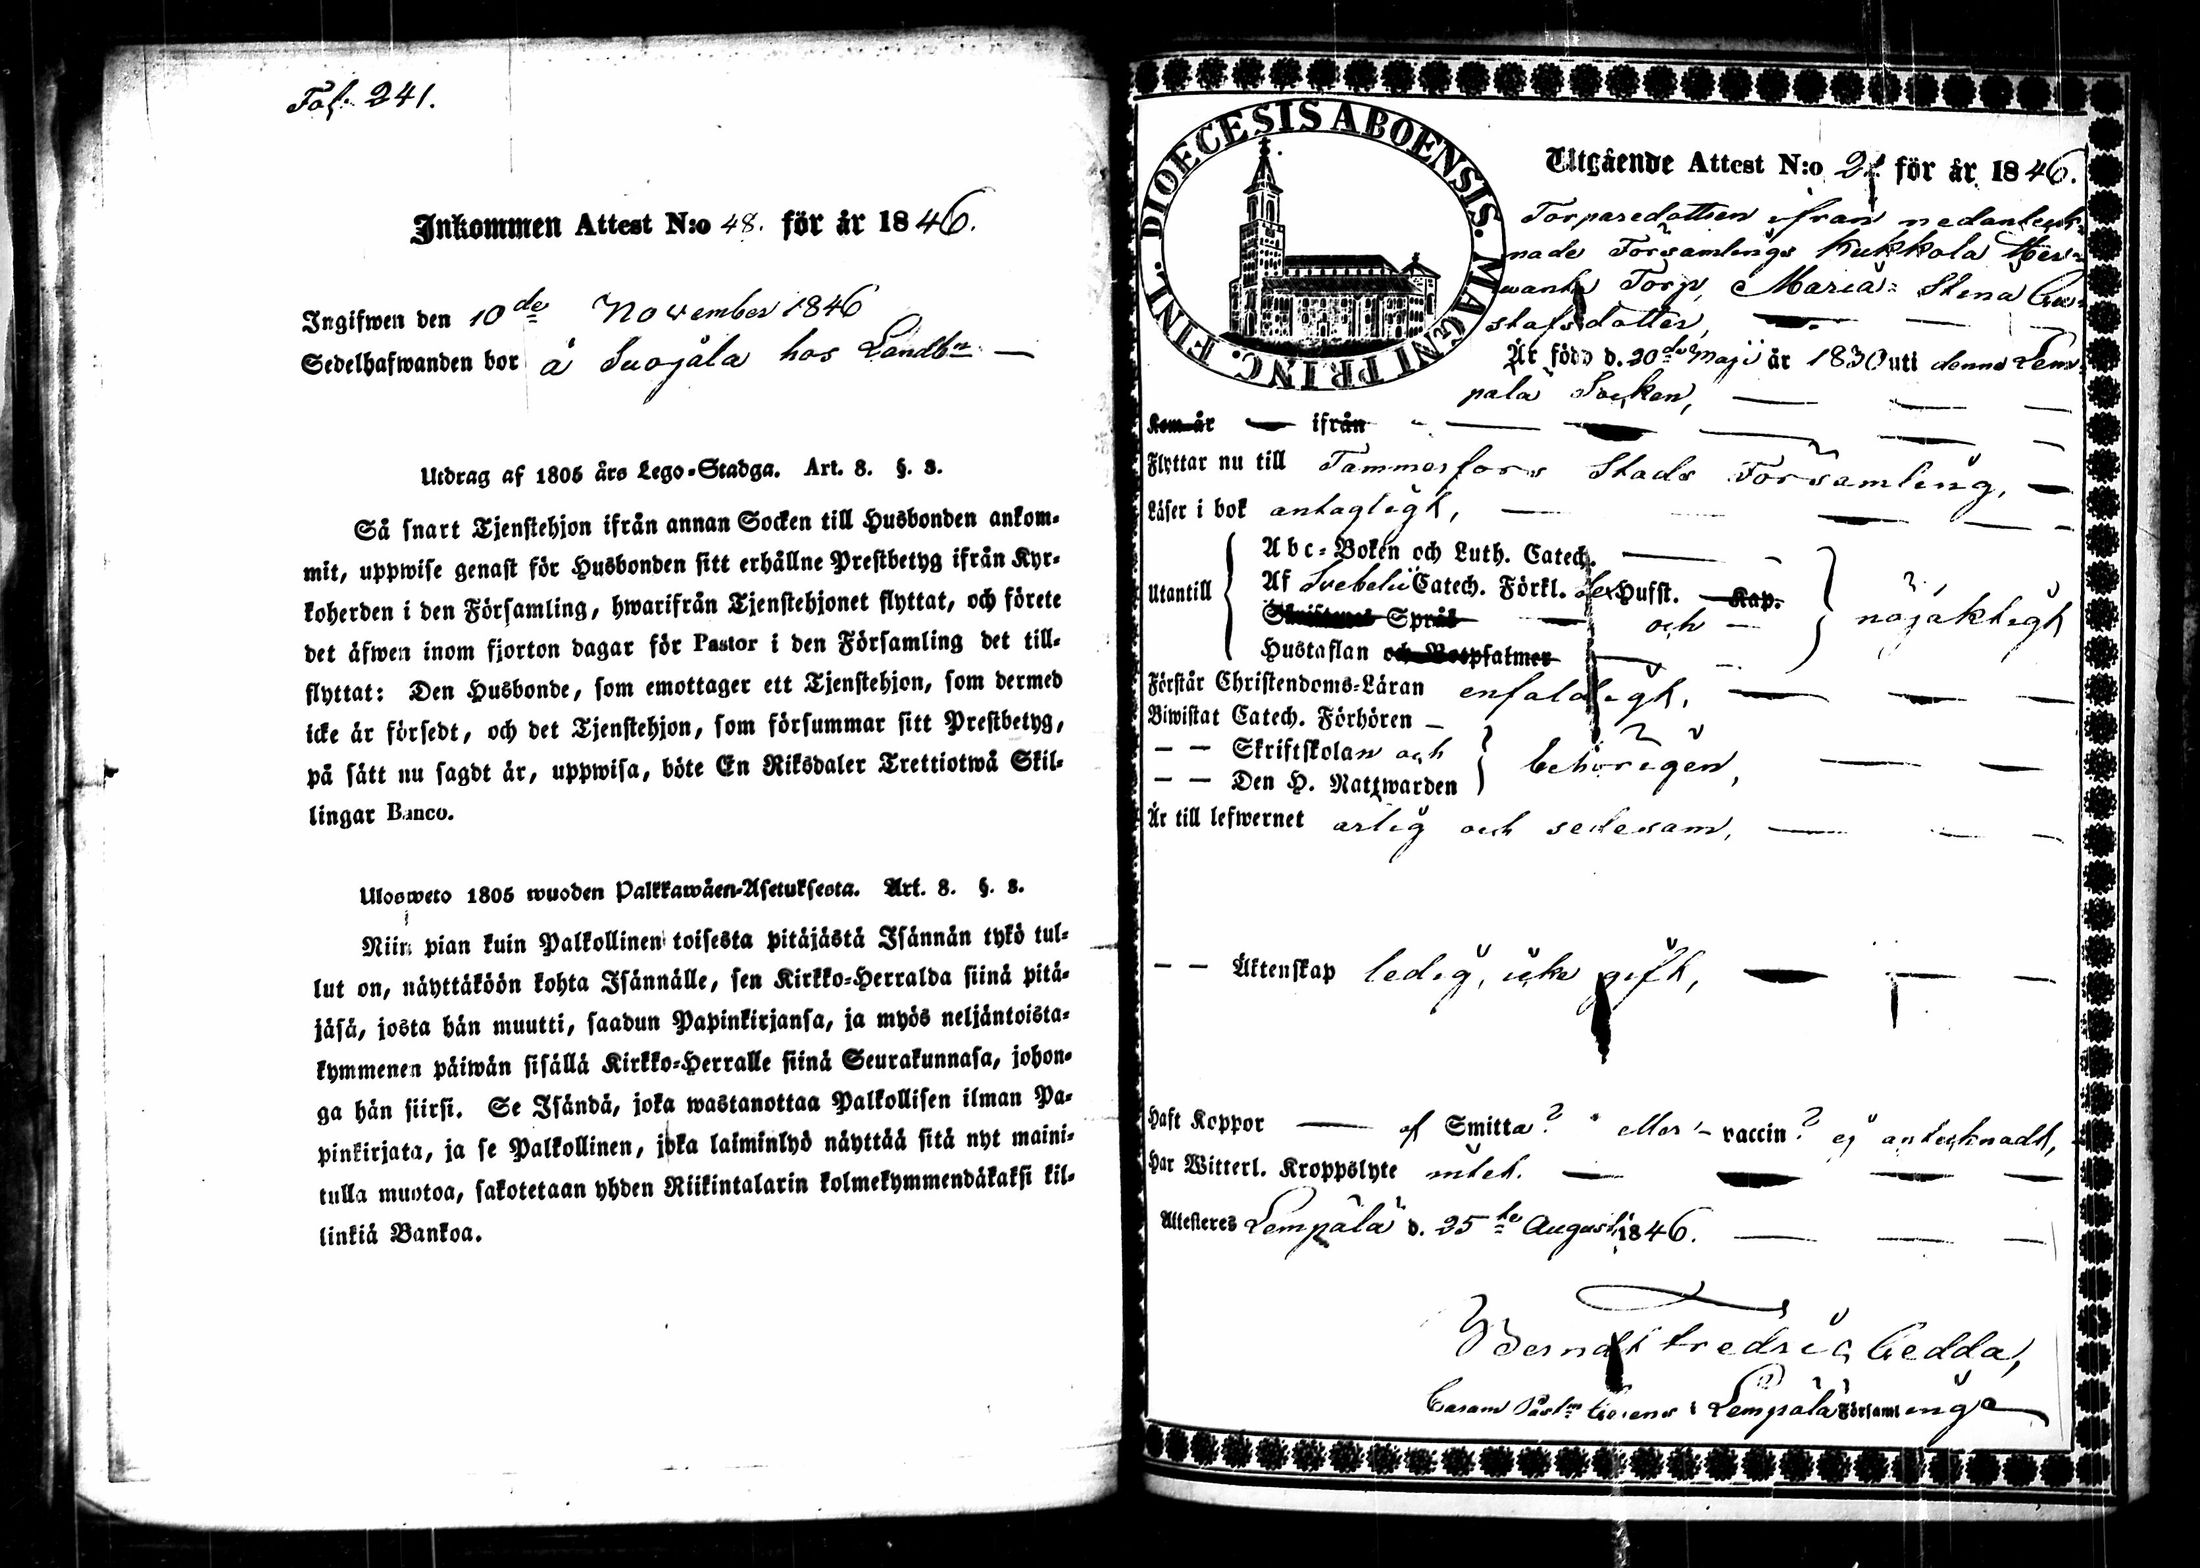 Fol. 241.
Inkommen Attest N:o 48. för år 1846.
Ingifwen den 10de November 1846
Sedelhafwanden bor å Suojåla hos Landbn
Utdrag af 1805 års Lego-Stadga. Art. 8. §. 3.
Så snart Tjenstehjon ifrån annan Socken till Husbonden ankom-
mit, uppwise genast för Husbonden sitt erhållne Prestbetyg ifrån Kyr-
koherden i den Församling, hwarifrån Tjenstehjonet flyttat, och förete
det äfwen inom fjorton dagar för Pastor i den Församling det till-
flyttat: Den Husbonde, som emottager ett Tjenstehjon, som dermed
icke är försedt, och det Tjenstehjon, som försummar sitt Prestbetyg,
på sätt nu sagdt är, uppwisa, böte En Riksdaler Trettiotwå Skil-
lingar Banco.
Ulosweto 1805 wuoden Palkkawäen-Asetuksesta. Art. 8. §. 3.
Niin pian kuin Palkollinen toisesta pitäjästä Isännän tykö tul-
lut on, näyttäköön kohta Isännälle, sen Kirkko-Herralda siinä pitä-
jäsä, josta hän muutti, saadun Papinkirjansa, ja myös neljäntoista-
kymmenen päiwän sisällä Kirkko-Herralle siinä Seurakunnasa, johon-
ga hän siirsi. Se Isändä, joka wastanottaa Palkollisen ilman Pa-
pinkirjata, ja se Palkollinen, joka laiminlyö näyttää sitä nyt maini-
tulla muotoa, sakotetaan yhden Riikintalarin kolmekymmendäkaksi kil-
linkiä Bankoa.
DIOECESIS ABOENSIS. MAGNI PRINC. FINL.
Utgående Attest N:o för år 1846.
Torparedottren ifrån nedanteck-
nade Församlings Kukkola
Torp, Maria Stina Gu-
stafsdotter,
Är född d. 20de Maji år 1830 uti denna Lem-
pälä Socken,
Kom år ifrån
Flyttar nu till Tammerfors Stads Församling,
Läser i bok antagligt,
Utantill
Abc-Boken och Luth. Catech.
Af Svebelii Catech. Förkl. Hufst. Kap.
Skriftenes Språk och nöjaktigt
Hustaflan och Botpsalmer
Förstår Christendoms-Läran enfaldigt,
Biwistat Catech. Förhören
Skriftskolan och behörigen,
Den H. Nattwarden
Är till lefwernet ärlig och sedesam,
Äktenskap ledig, icke gift,
Haft Koppor af Smitta? eller vaccin? ej antecknadt,
Har Witterl. Kroppslyte intet.
Attesteres Lempälä d. 25te Augusti 1846.
Berndt Fredric Gedda,
Lempälä Församlinge